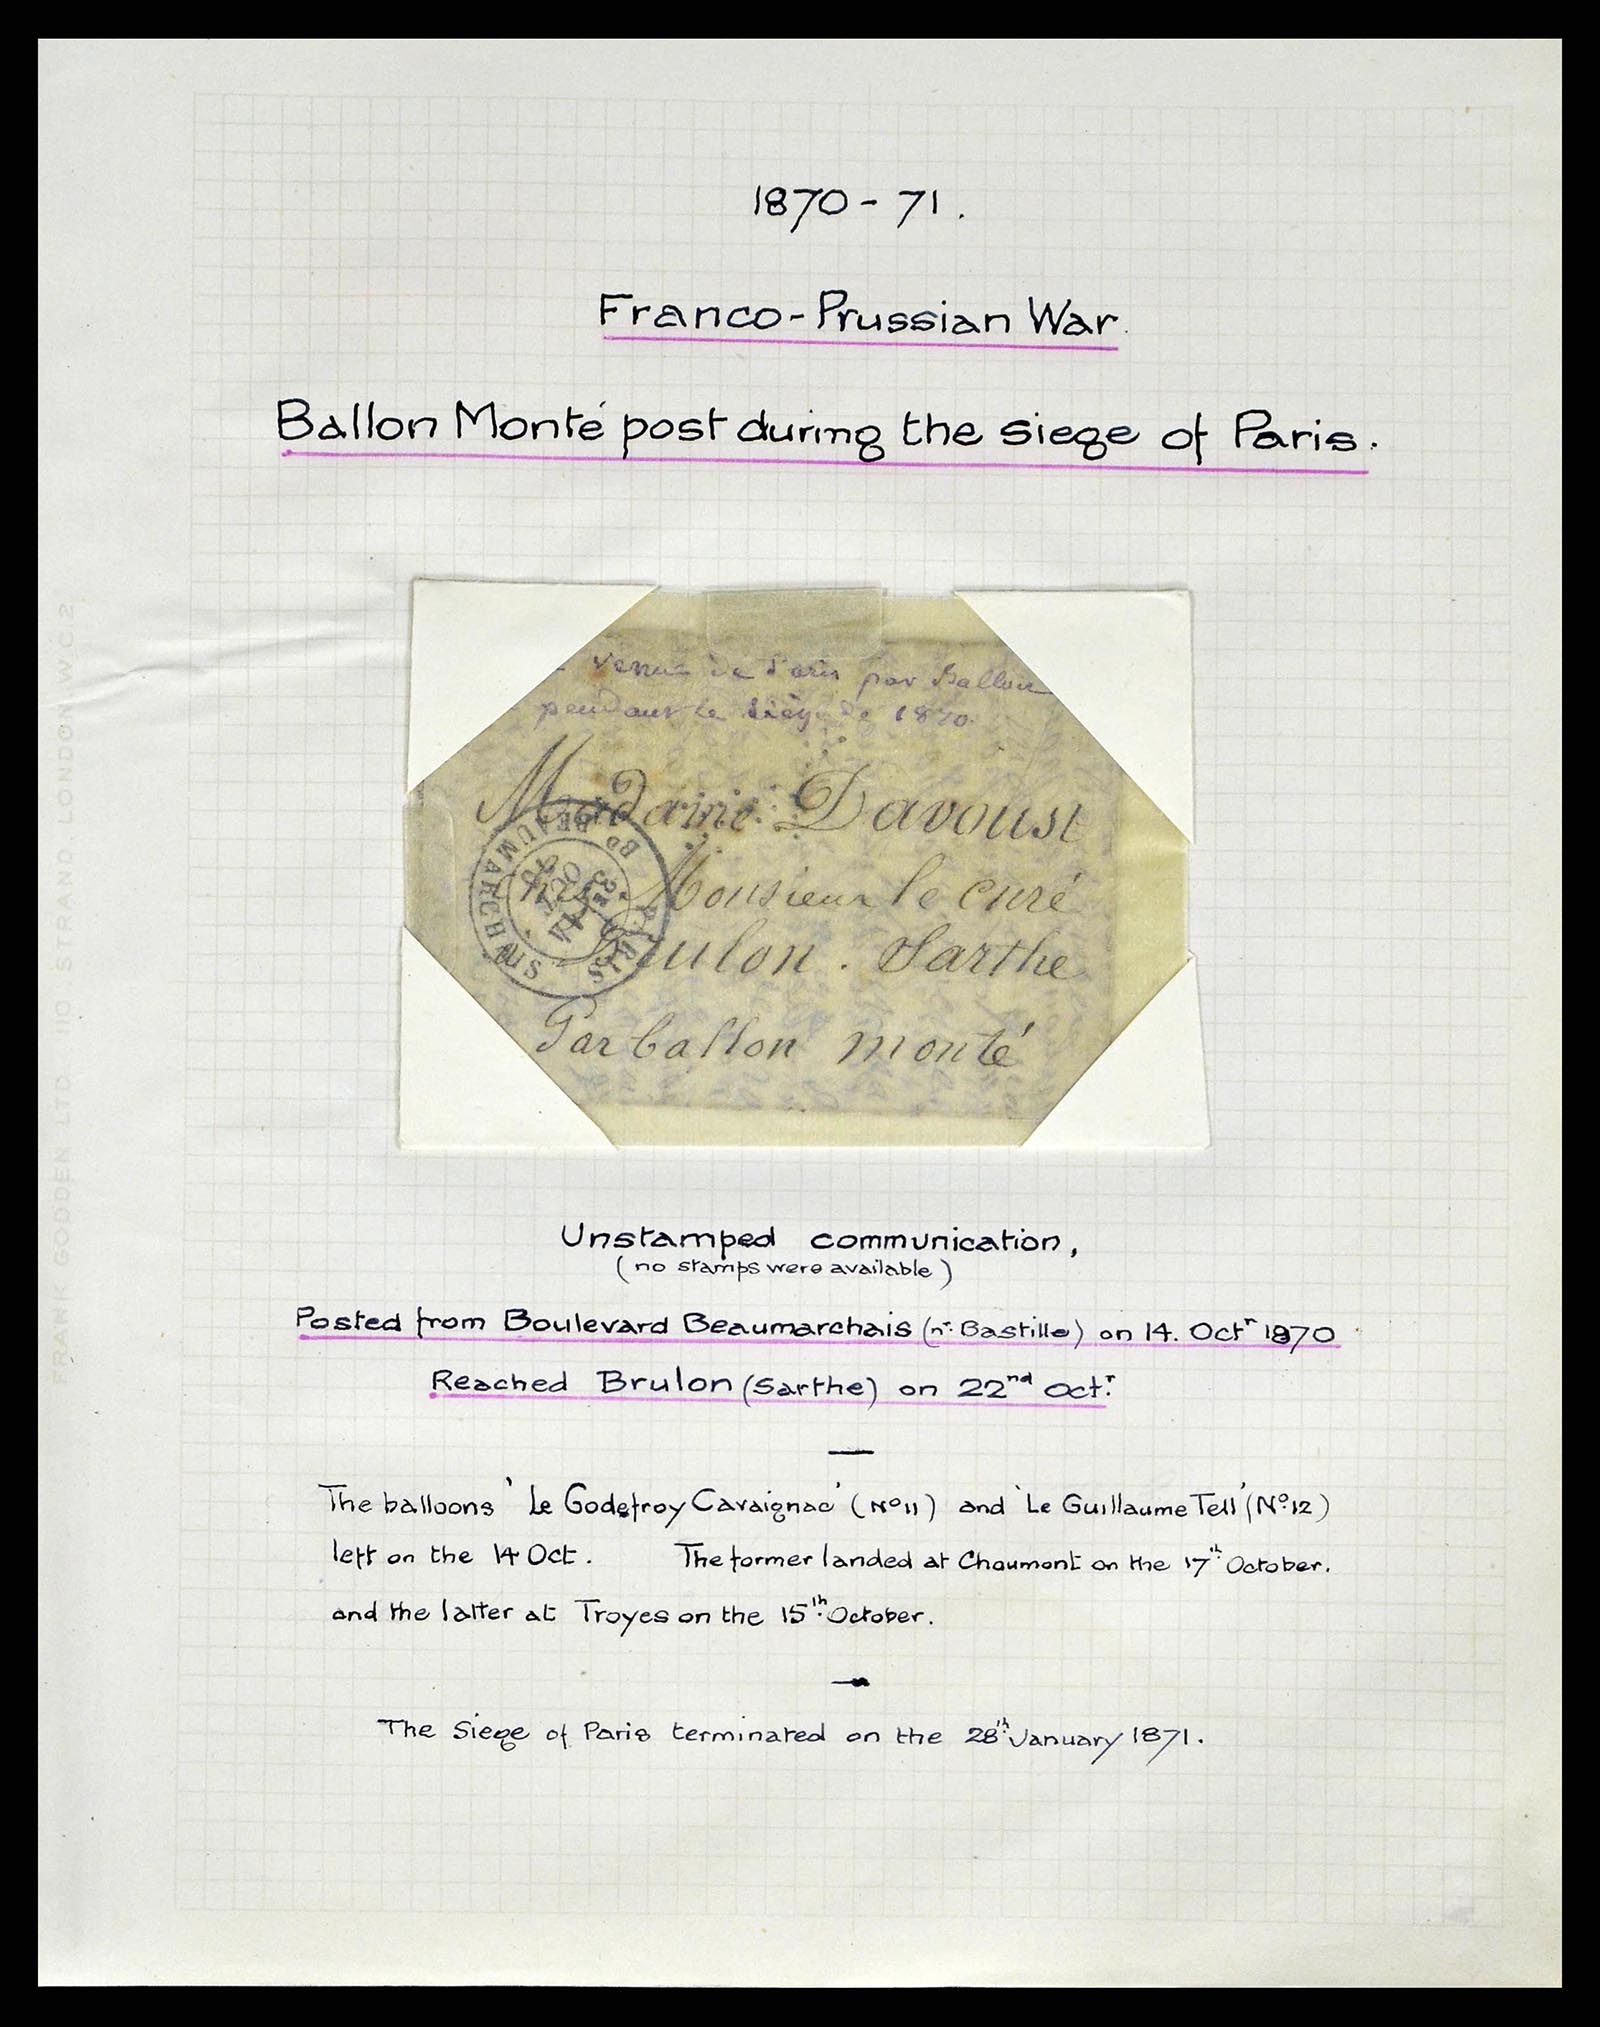 1870 - 71.
Franco-Prussian War.
Ballon Monté post during the siege of Paris.
venue de Paris par Ballon
pendant le siège de 1870.
Madame Davoust
chez Monsieur le curé
Brulon. Sarthe
Par ballon monté
PARIS BD BEAUMARCHAIS
3E 14 OCT 70
Unstamped communication,
(no stamps were available)
Posted from Boulevard Beaumarchais (nr. Bastille) on 14. Octr 1870
Reached Brulon (Sarthe) on 22nd Octr.
The balloons 'Le Godefroy Cavaignac' (No 11) and 'Le Guillaume Tell' (No. 12)
left on the 14 Oct. The former landed at Chaumont on the 17th October.
and the latter at Troyes on the 15th October.
The Siege of Paris terminated on the 28th January 1871.
FRANK GODDEN LTD. 110, STRAND, LONDON W.C.2